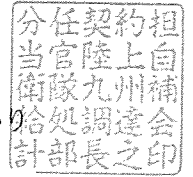 分任契約担
当官陸上自
衛隊九州補
給処調達会
計部長之印
り